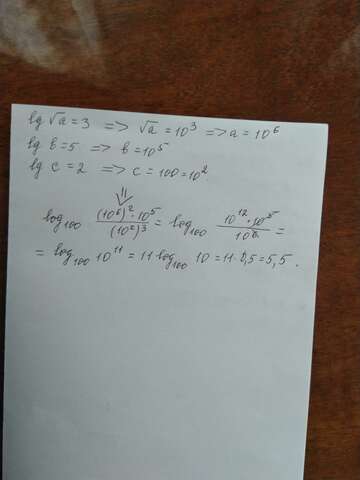 lg √a = 3 => √a = 10³ => a = 10⁶
lg b = 5 => b = 10⁵
lg c = 2 => c = 100 = 10².
⇓
log₁₀₀ (10⁶)²·10⁵/(10²)³ = log₁₀₀ 10¹²·10⁵/10⁶ =
= log₁₀₀ 10¹¹ = 11 log₁₀₀ 10 = 11·0,5 = 5,5.